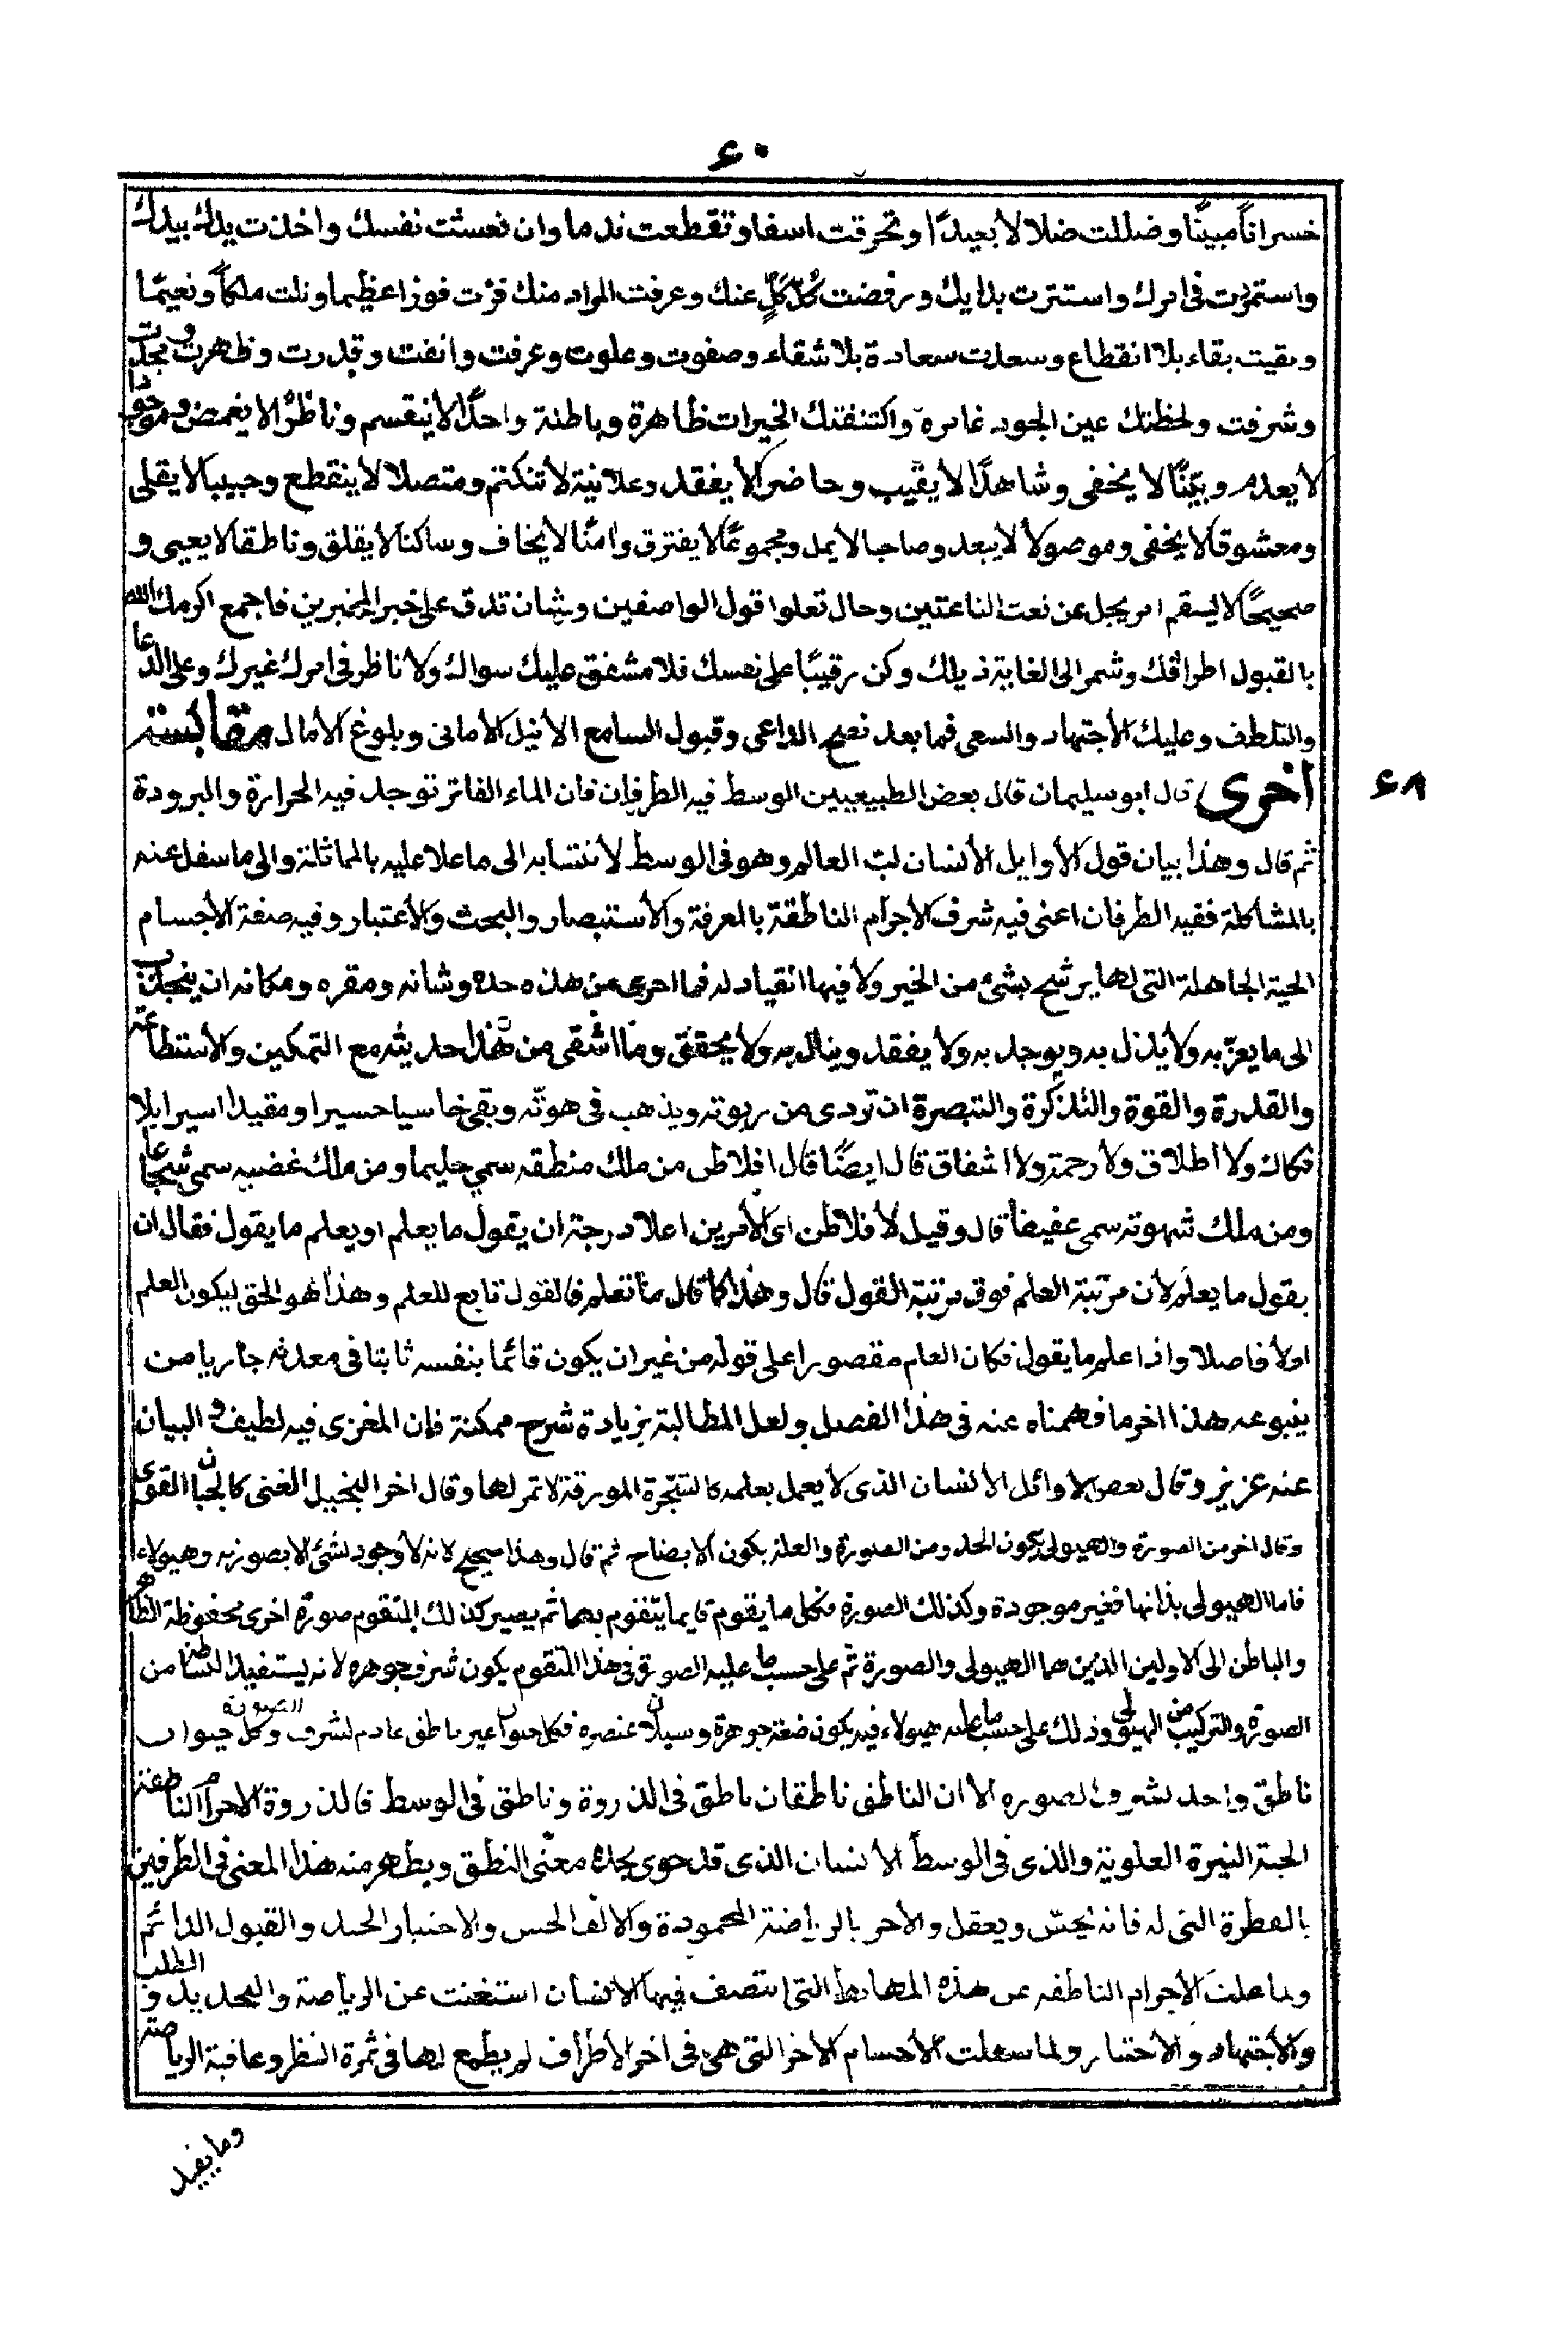 ٤٠
خسراناً مبيناً وضللت ضلالا بعيداً وتحرقت اسفا وتقطعت ندما وان نعشت نفسك واخذت يدك بيدك
واستمررت في امرك واستترت بدايك ورفضت كل كلٍّ عنك وعرفت المراد منك فزت فوزا عظيما ونلت ملكاً ونعيمًا
وبقيت بقاء بلا انقطاع وسعدت سعادة بلا شقاء وصفوت وعلوت وعرفت وانفت وقدرت وظهرت ووجدت
وشرفت ولحظتك عين الجود غامره واكتنفتك الخيرات ظاهرة وباطنة واحدًا لا ينقسم وناظرًا لا يغمض وموجودا
لا يعدم وبيّنًا لا يخفى وشاهدًا لا يغيب وحاضرا لا يفقد وعلانية لا تنكتم ومتصلا لا ينقطع وحبيبا لا يقلى
ومعشوقا لا يخفى وموصولا لا يبعد وصاحبا لا يمل ومجموعًا لا يفترق وامنًا لا يخاف وساكنا لا يقلق وناطقا لا يعيى و
صحيحًا لا يسقم امر يجل عن نعت الناعتين وحال تعلوا قول الواصفين وشان تدق على خبر المخبرين فاجمع اكرمك الله
بالقبول اطرافك وشمر الى الغاية ذيلك وكن رقيبًا على نفسك فلا مشفق عليك سواك ولا ناظر في امرك غيرك وعلى الدعا
والتلطف وعليك الاجتهاد والسعى فما بعد نصح الداعى وقبول السامع الا نيل الامانى وبلوغ الامال مقابسة
اخرى قال ابو سليمان قال بعض الطبيعيين الوسط فيه الطرفان فان الماء الفاتر توجد فيه الحرارة والبرودة
٤٨
ثم قال وهذا بيان قول الاوايل الانسان لب العالم وهو في الوسط لانتسابه الى ما علا عليه بالمماثلة والى ما سفل عنه
بالمشاكلة ففيه الطرفان اعنى فيه شرف الاجرام الناطقة بالمعرفة والاستبصار والبحث والاعتبار وفيه صفة الاجسام
الحية الجاهلة التى لها يرشح بشئ من الخير ولا فيها انقياد له فما احرى من هذه حده وشانه ومقره ومكانه ان ينجذب
الى ما يعزّ به ولا يذل به ويوجد به ولا يفقد وينال به ولا يحقق وما اشقى من هذا حديثه مع التمكين والاستطاعة
والقدرة والقوة والتذكرة والتبصرة ان تردى من ربوته ويذهب في هوته وبقى خاسيا حسيرا ومقيدا اسيرا بلا
فكاك ولا اطلاق ولا رحمة ولا اشفاق قال ايضًا قال افلاطن من ملك منطقه سمي حليما ومن ملك غضبه سمى شجاعا
ومن ملك شهوته سمى عفيفا قال وقيل لافلاطن اى الامرين اعلا درجة ان يقول ما يعلم او يعلم ما يقول فقال ان
يقول ما يعلم لان مرتبة العلم فوق مرتبة القول قال وهذا كما قال ما نعلم فالقول تابع للعلم وهذا هو الحق ليكون العلم
اولا فاصلا واذا علم ما يقول فكان العلم مقصورا على قوله من غير ان يكون قائما بنفسه ثابتا في معدنه جاريا من
ينبوعه هذا اخر ما فهمناه عنه في هذا الفصل ولعل المطالبة بزيادة شرح ممكنة فان المغزى فيه لطيف والبيان
عنه عزيز وقال بعض الاوائل الانسان الذى لا يعمل بعلمه كالشجرة المورقة لا ثمر لها وقال اخر البخيل الغنى كالجبان القوى
وقال اخر من الصورة والهيولى يكون الحد ومن الصورة والعلة يكون الايضاح ثم قال وهذا صحيح لانه لا وجود لشئ الا بصورته وهيولاه
فاما الهيولى بذاتها فغير موجودة وكذلك الصورة فكل ما يقوم فايما يتقوم بهما ثم يصير كذلك المتقوم صورة اخرى محفوظة الظاهر
والباطن الى الاولين الذين هما الهيولى والصورة ثم على حسب ما عليه الصورة في هذا المتقوم يكون شرف جوهره لانه يستفيد البساطة من
الصورة والتركيب من الهيولى وذلك على حسب ما عليه هيولاه فيه يكون ضعة جوهرة وسيلان عنصره فكل حيوان غير ناطق عادم لشرف الصورة وكل حيوان
ناطق واجد لشرف الصوره الا ان الناطق ناطقان ناطق في الذروة وناطق في الوسط فالذروة الاجرام الناطقة
الحية النيرة العلوية والذى في الوسط الانسان الذى قد حوى بحده معنى النطق ويظهر منه هذا المعنى في الطرفين
بالفطرة التى له فانه يحسّ ويعقل والاخر بالرياضة المحمودة والالف الحسن والاختيار الجيد والقبول الدائم
ولما علت الاجرام الناطقه عن هذه المهابط التى انتصف فيها الانسان استغنت عن الرياضة والتجديد والطلب
والاجتهاد والاختيار ولما سفلت الاجسام الاخر التى هى في اخر الاطراف لم يطمع لها في ثمرة النظر وعاقبة الرياضة
وما يفيد